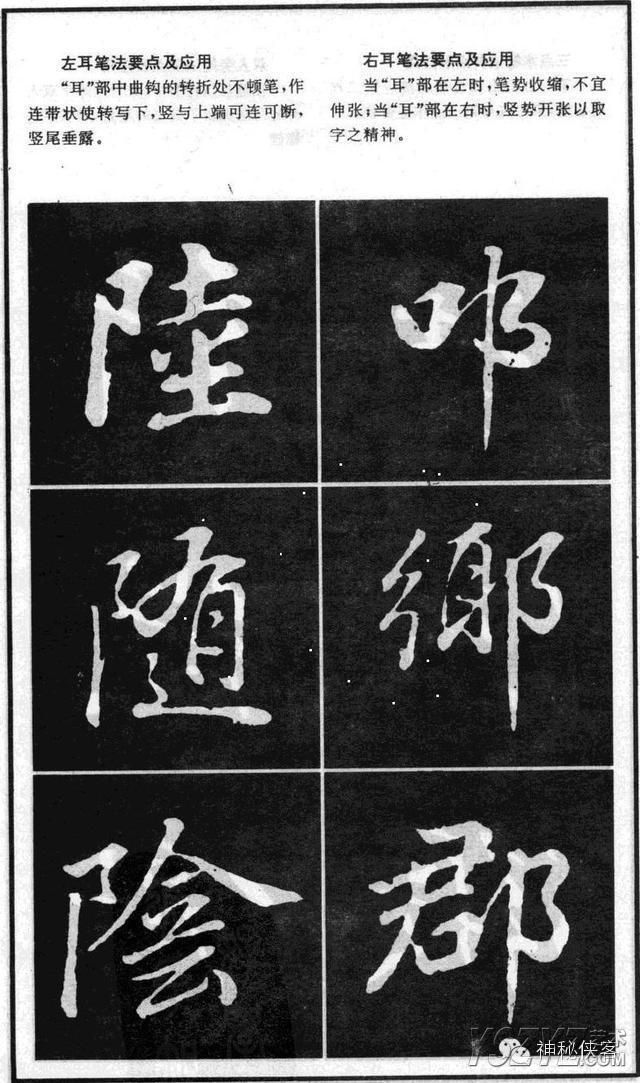 左耳笔法要点及应用
“耳”部中曲钩的转折处不顿笔，作
连带状使转写下，竖与上端可连可断，
竖尾垂露。
右耳笔法要点及应用
当“耳”部在左时，笔势收缩，不宜
伸张；当“耳”部在右时，竖势开张以取
字之精神。
陸
随
陰
叩
鄉
郡
神秘侠客